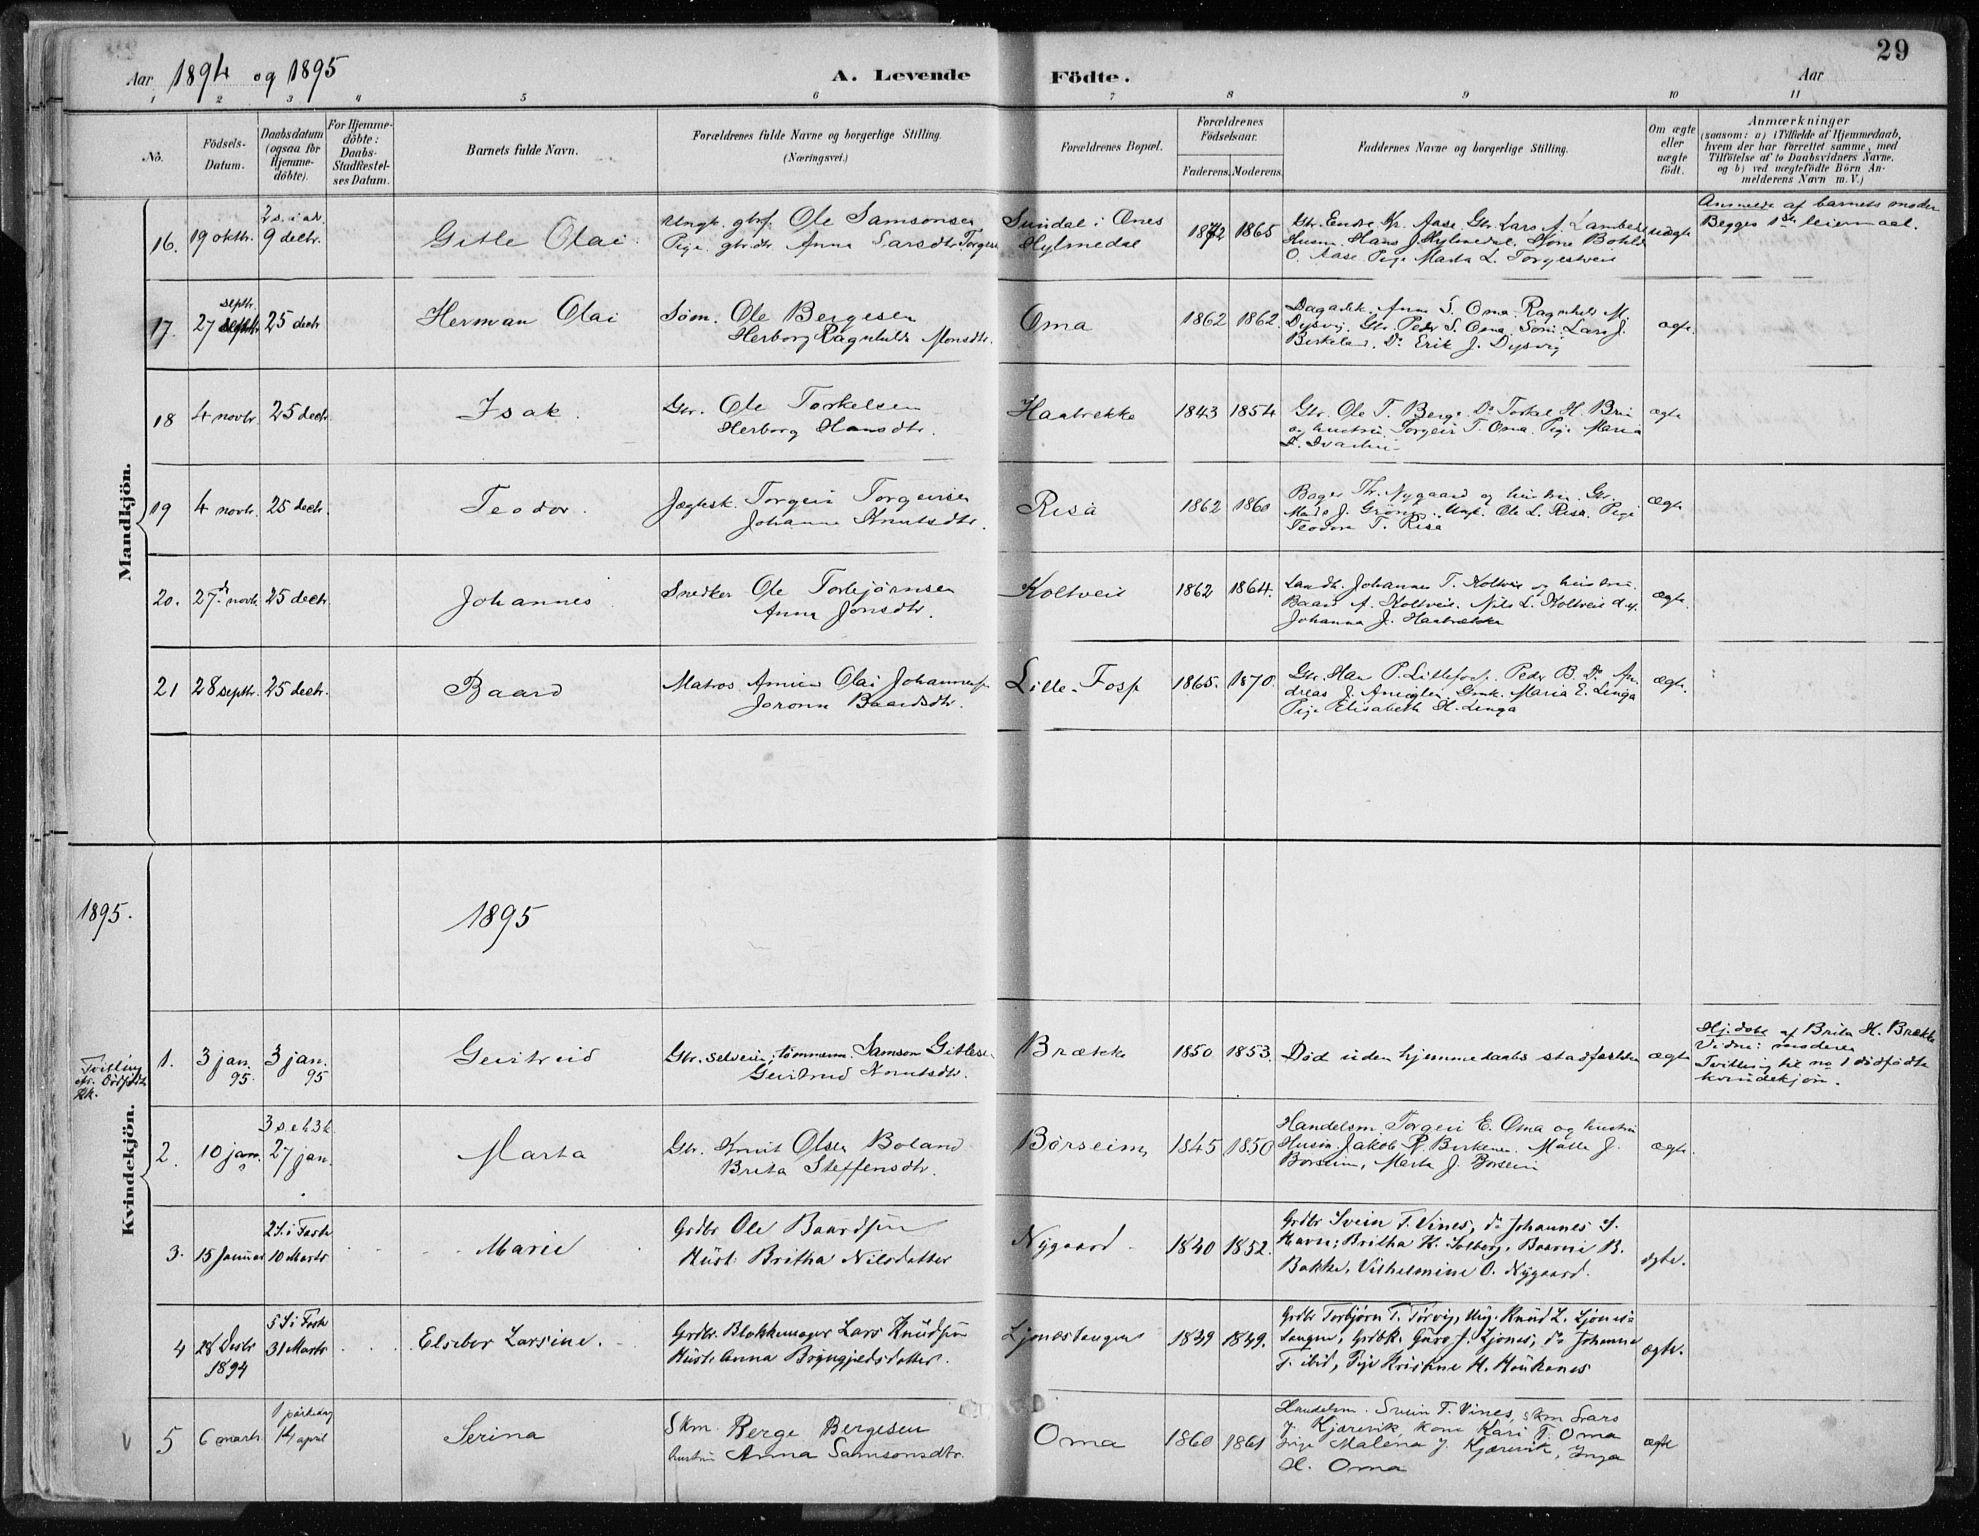 29
Aar 1894 og 1895 A. Levende Födte. Aar
1 2 3 4 5 6 7 8 9 10 11
No.
Födsels-
Datum.
Daabsdatum
(ogsaa for
Hjemme-
döbte).
For Hjemme-
döbte:
Daabs-
Stadfæstel-
ses Datum.
Barnets fulde Navn.
Forældrenes fulde Navne og borgerlige Stilling.
(Næringsvei.)
Forældrenes Bopæl.
Forældrenes
Födselsaar.
Faderens. Moderens.
Faddernes Navne og borgerlige Stilling.
Om ægte
eller
uægte
födt.
Anmærkninger
(saasom: a) i Tilfælde af Hjemmedaab,
hvem der har forrettet samme, med
Tilföielse af to Daabsvidners Navne.
og b) ved uægtefödte Börn An-
melderens Navn m. V.)
Mandkjön.
16. 19 oktbr. 2 s. i adv.
9 decbr.
Gitle Olai
Ungk. gbrs. Ole Samsonsen
Pige gbr.dtr. Anna Larsdtr.
Sundal i Ænes
Hylmedal
1872 1865
Gbr. Endre Kr. Aase, Gbr. Lars A.
Husm. Hans J. Hylmedal,
O. Aase, Pige Marta L. Torgestveit
uægte
Anmeldt af barnets moder
Begges 1ste leiermaal.
17. 27 septbr. 25 decbr
Herman Olai
Søm. Ole Bergesen
Herborg Ragnhilda Monsdtr.
Oma
1862 1862
Anna S. Oma, Ragnhild M.
Dysvig, Gbr. Peder S. Oma, Søm. Lars J.
Birkeland, Do Erik J. Dysvig
ægte
18 4 novbr 25 decbr
Isak.
Gbr. Ole Torkelsen
Herborg Hansdtr.
Haatrekke
1843 1854
Gbr. Ole T. Berge, Do Torkel H. Bru
og hustru, Torgeir T. Oma, Pige Maria
ægte
19 4 novbr. 25 decbr.
Teodor.
Torgeir Torgeirsen
Johanna Knutsdtr.
Risa
1862 1860
Bager Th. Nygaard og hustru, Gbr.
J. Ungk. Ole L. Risa, Pige
Teodora T. Risa
ægte
20. 27d novb. 25 decbr
Johannes
Snedker Ole Torbjørnsen
Anna Jonsdtr.
Koltveit
1862 1864.
Landh. Johannes T. Koltveit og hustru.
Baard A. Koltveit. Nils L. Koltveit
Johanna J. Haatrækka
ægte.
21 28 septbr. 25 decbr.
Baard
Matros Olai Johannessen
Joronn Baardsdtr.
Lille-Fosse
1865. 1870.
Gbr. Han P. Littlefosse, Peder B. Do An-
dreas J. Maria E. Linga
Pige Elisabeth H. Linga
ægte.
1895.
1895
Kvindekjön.
1. 3 jan.
95. 3 jan.
95
Geirtrud
Gbr. selveier, tømmerm. Samson Gitlesen
Geirtrud Knutsdtr.
Brætkke
1850 1853.
Død uden hjemmedaabs stadfæstelse
ægte
Hj.døbt af Brita H. Brække
Vidne: moderen
Tvilling til no 1 dødfødte
kvindekjøn.
Tvilling
2. 10 jan. 3 s. e. h 3 k.
27 jan.
Marta
Gbr. Knut Olsen Boland
Brita Steffensdtr.
Børseim
1845 1850
Handelsm. Torgeir E. Oma og hustru
Husm. Jakob R. Malla J.
Børseim, Marta J. Børseim
ægte.
3. 15 Januar 2 S. i Faste
10 Marts
Marie
Grdbr Ole Baardsen
Hust. Britha Nilsdatter
Nygaard
1840 1852.
Grdbr Svein T. Vines, do Johannes S.
Havn; Britha K. Solberg, B.
Bakke, Vilhelmine O. Nygaard.
ægte.
4 28 Decbr
1894 5 S i Faste
31 Marts
Elsebor Larsine.
Grdbr. Blokkemager Lars Knudsen
Hust. Anna Brynjulfsdatter.
Ljonestangen
1849 1849.
Grdbr Torbjørn T. Tørvig, Ung. Knud L. Ljones-
tangen, Grdbk. Guro J. Ljones, do Johanna
T. ibid, Pige Kristine H. Haukanes
ægte.
v 5 6 marts 1 påskedag
14 april
Serina
Skm. Berge Bergesen
hustru Anna Samsonsdtr.
Oma
1860 1861
Handelsm. Svein T. Vines, skm Lars
J. Kjærevik, Kone Kari T. Oma
Pige Malena J. Kjærevik, Inga
H. Oma
ægte